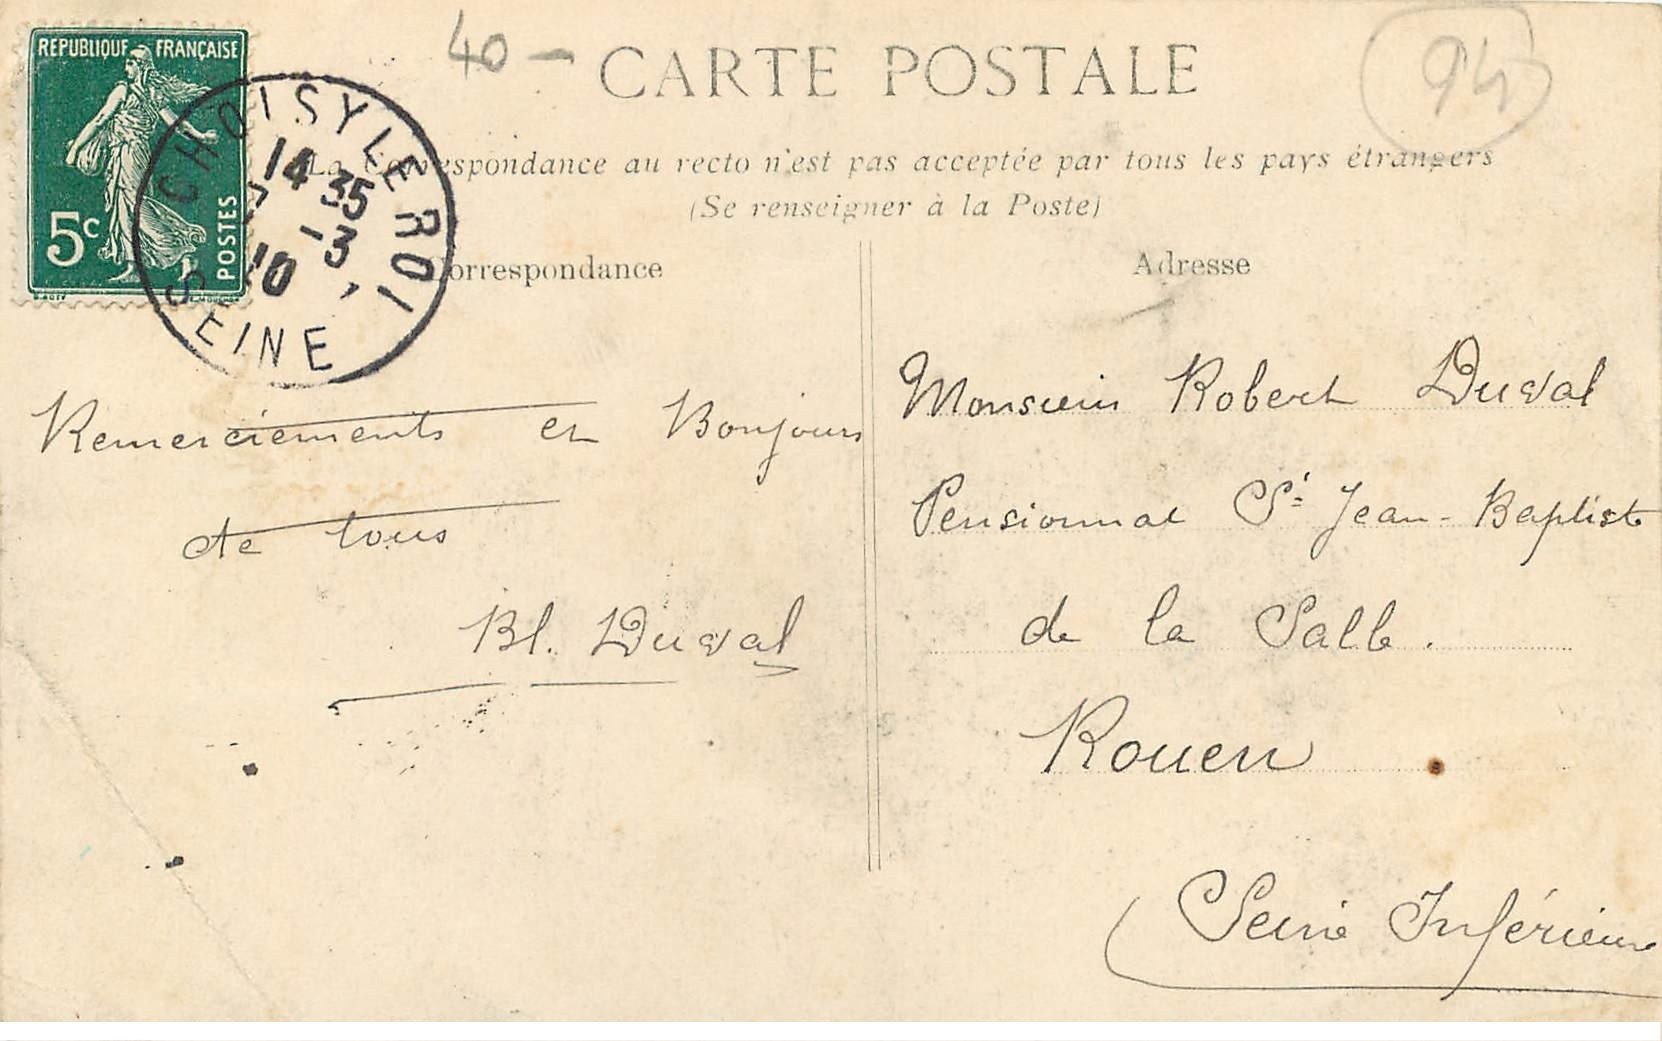 REPUBLIQUE FRANÇAISE
5c
POSTES
CHOISY LE ROI
14 35
7 -3
10
SEINE
40 -
CARTE POSTALE
94
La Correspondance au recto n'est pas acceptée par tous les pays étrangers
(Se renseigner à la Poste)
Correspondance
Remerciements et Bonjours
de tous
Bl. Duval
Adresse
Monsieur Robert Duval
Pensionnat St Jean-Baptiste
de la Salle.
Rouen
Seine Inférieure